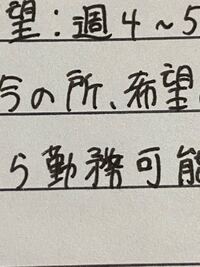 望：週4~5
今の所、希望
ら勤務可能